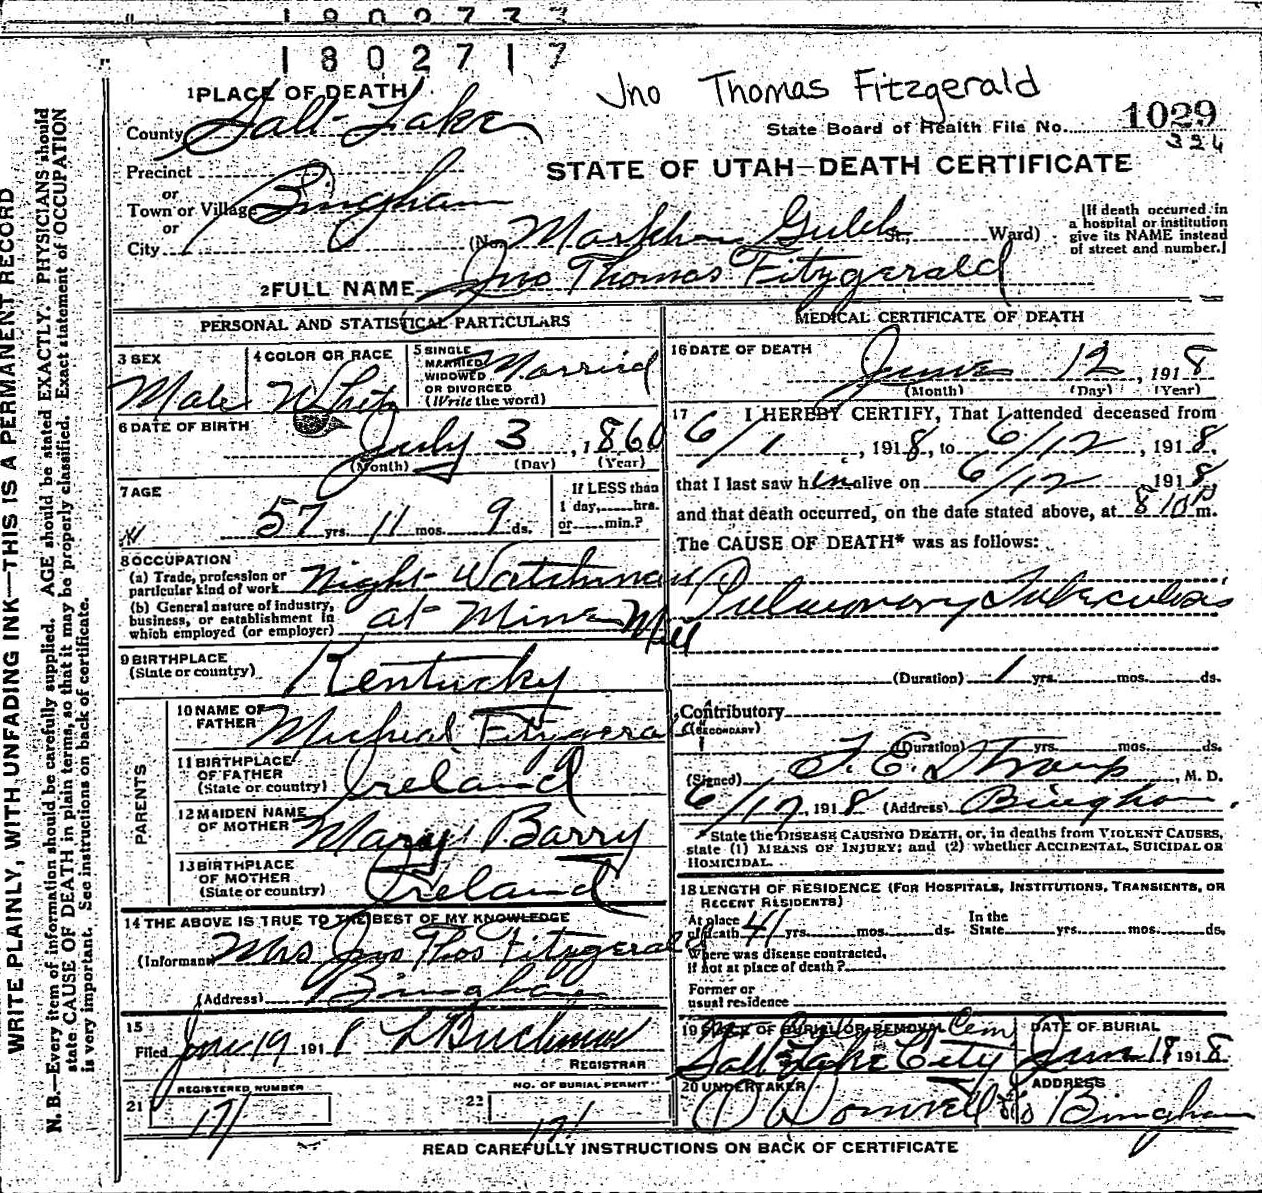 1802717
1 PLACE OF DEATH
Jno Thomas Fitzgerald
County Salt Lake
State Board of Health File No. 1029
Precinct
STATE OF UTAH—DEATH CERTIFICATE
or
Town or Village Bingham
or
City (No. Markham Gulch St., Ward)
[If death occurred in a hospital or institution give its NAME instead of street and number.]
2 FULL NAME Jno Thomas Fitzgerald
PERSONAL AND STATISTICAL PARTICULARS
3 SEX Male
4 COLOR OR RACE White
5 SINGLE MARRIED WIDOWED OR DIVORCED (Write the word) Married
6 DATE OF BIRTH July 3, 1860
(Month) (Day) (Year)
7 AGE 57 yrs. 11 mos. 9 ds.
If LESS than 1 day, hrs. or min.?
8 OCCUPATION
(a) Trade, profession or particular kind of work Night Watchman
(b) General nature of industry, business, or establishment in which employed (or employer) at Mine Mill
9 BIRTHPLACE (State or country) Kentucky
PARENTS
10 NAME OF FATHER Micheal Fitzgerald
11 BIRTHPLACE OF FATHER (State or country) Ireland
12 MAIDEN NAME OF MOTHER Mary Barry
13 BIRTHPLACE OF MOTHER (State or country) Ireland
14 THE ABOVE IS TRUE TO THE BEST OF MY KNOWLEDGE
(Informant) Mrs Jno Thos Fitzgerald
(Address) Bingham
15
Filed June 19 1918
REGISTRAR
21 REGISTERED NUMBER 171
22 NO. OF BURIAL PERMIT 171
MEDICAL CERTIFICATE OF DEATH
16 DATE OF DEATH
June 12, 1918
(Month) (Day) (Year)
17 I HEREBY CERTIFY, That I attended deceased from
6/1, 1918, to 6/12, 1918,
that I last saw him alive on 6/12 1918,
and that death occurred, on the date stated above, at 8 10 P m.
The CAUSE OF DEATH* was as follows:
Pulmonary Tuberculosis
(Duration) 1 yrs. mos. ds.
Contributory
(SECONDARY)
(Duration) yrs. mos. ds.
(Signed) F. E. Straup, M. D.
6/17 1918 (Address) Bingham.
*State the DISEASE CAUSING DEATH, or, in deaths from VIOLENT CAUSES,
state (1) MEANS OF INJURY; and (2) whether ACCIDENTAL, SUICIDAL OR
HOMICIDAL.
18 LENGTH OF RESIDENCE (FOR HOSPITALS, INSTITUTIONS, TRANSIENTS, OR
RECENT RESIDENTS)
At place of death 41 yrs. mos. ds. In the State yrs. mos. ds.
Where was disease contracted,
if not at place of death?
Former or
usual residence
19 PLACE OF BURIAL OR REMOVAL Cem
Salt Lake City
DATE OF BURIAL
June 18 1918
20 UNDERTAKER
O'Donnell & Co
ADDRESS
Bingham
READ CAREFULLY INSTRUCTIONS ON BACK OF CERTIFICATE
WRITE PLAINLY, WITH UNFADING INK—THIS IS A PERMANENT RECORD
N. B.—Every item of information should be carefully supplied. AGE should be stated EXACTLY. PHYSICIANS should
state CAUSE OF DEATH in plain terms, so that it may be properly classified. Exact statement of OCCUPATION
is very important. See instructions on back of certificate.